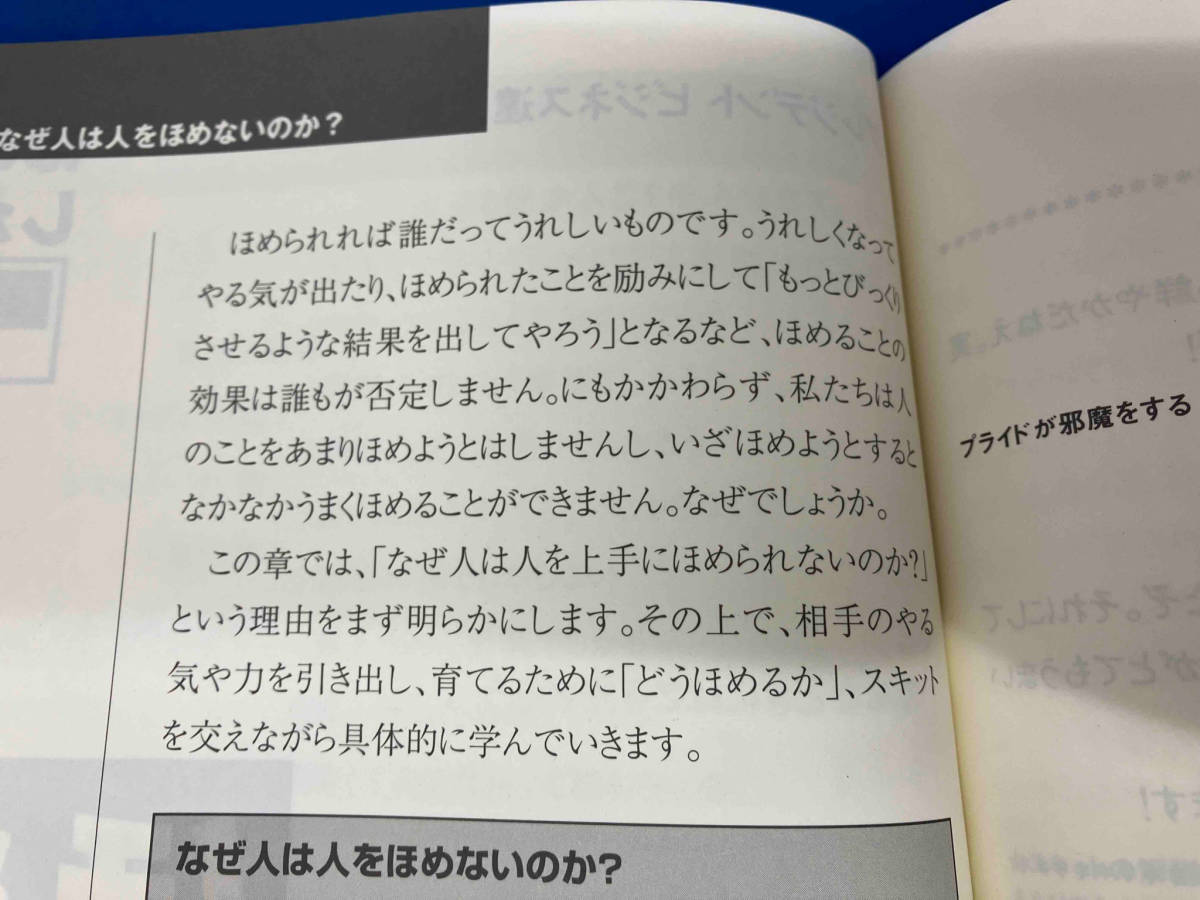 なぜ人は人をほめないのか?
ほめられれば誰だってうれしいものです。うれしくなって
やる気が出たり、ほめられたことを励みにして「もっとびっくり
させるような結果を出してやろう」となるなど、ほめることの
効果は誰もが否定しません。にもかかわらず、私たちは人
のことをあまりほめようとはしませんし、いざほめようとすると
なかなかうまくほめることができません。なぜでしょうか。
この章では、「なぜ人は人を上手にほめられないのか?」
という理由をまず明らかにします。その上で、相手のやる
気や力を引き出し、育てるために「どうほめるか」、スキット
を交えながら具体的に学んでいきます。
なぜ人は人をほめないのか?
プライドが邪魔をする